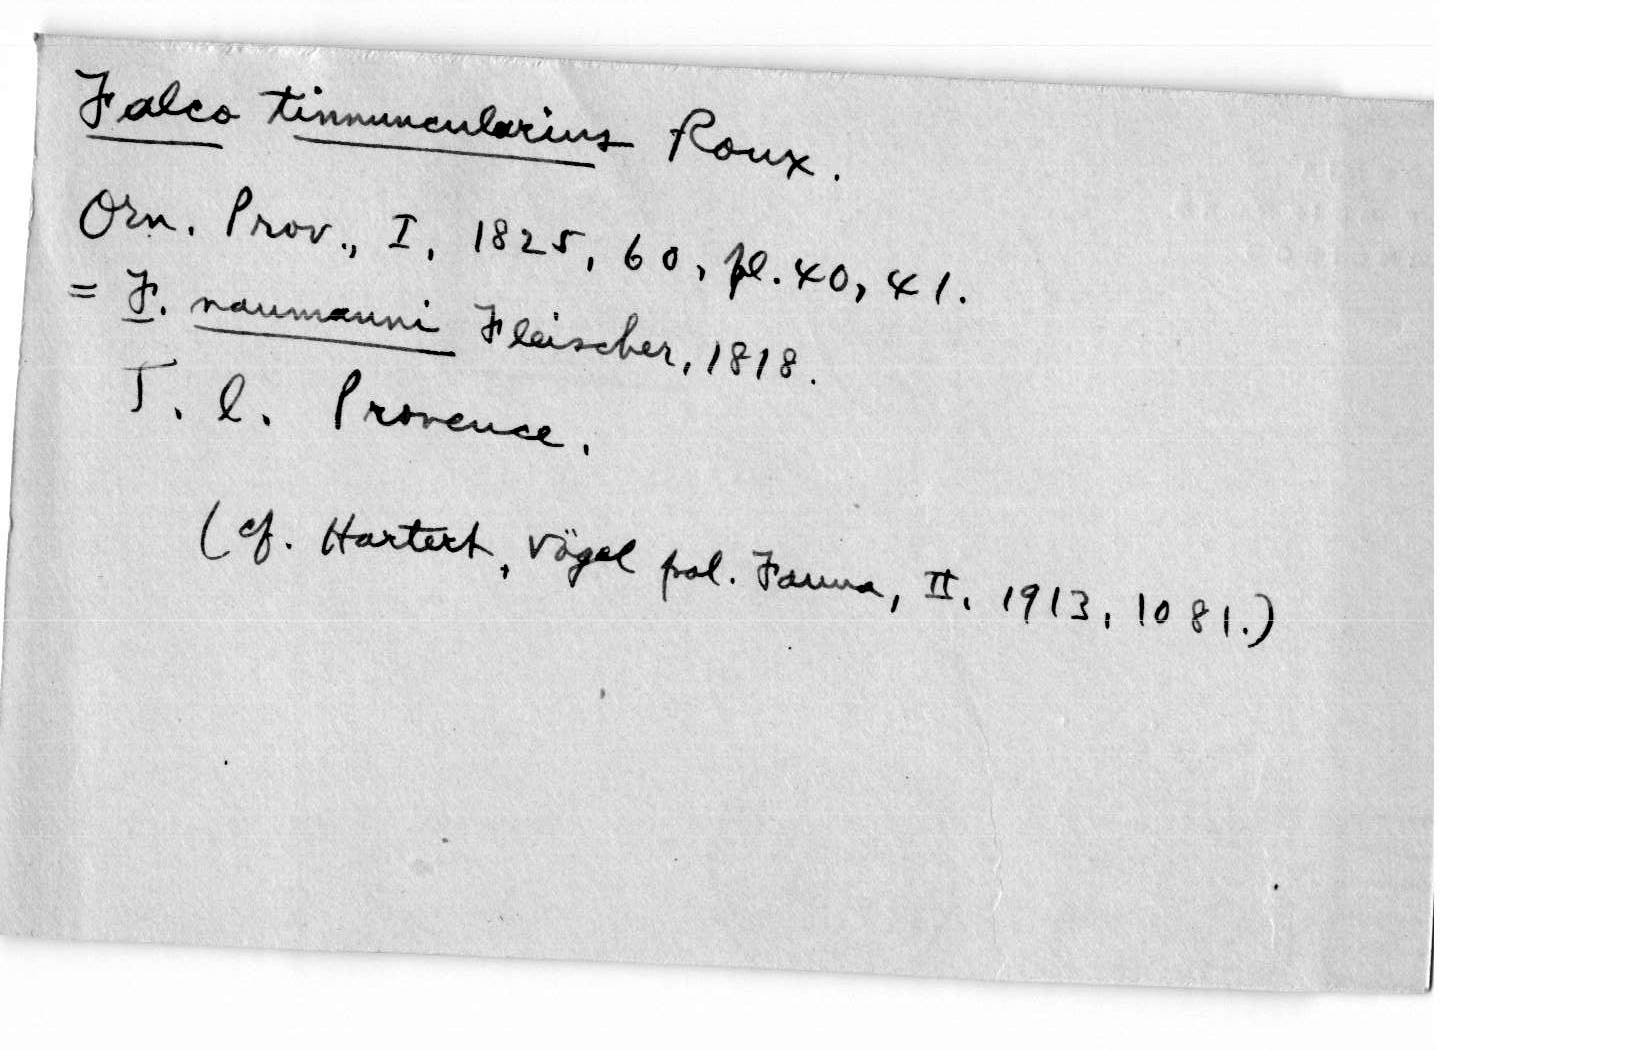 Falco tinnuncularius Roux.
Orn. Prov., I, 1825, 60, pl. 40, 41.
= F. naumanni Fleischer, 1818.
T. l. Provence.
(cf. Hartert, Vögel pal. Fauna, II, 1913, 1081.)